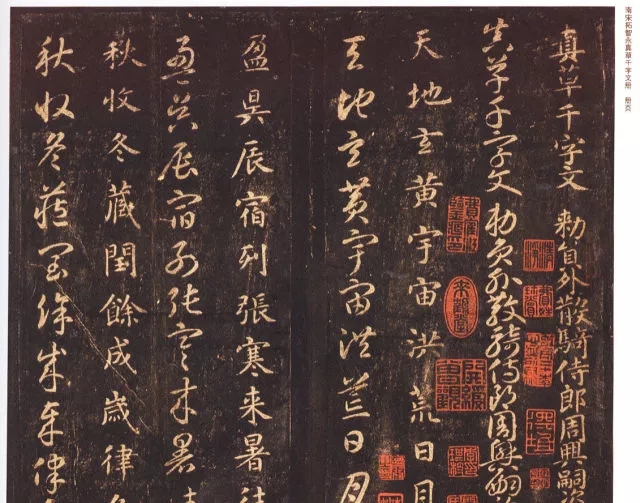 南宋拓智永真草千字文册 册页
真草千字文 勑員外散騎侍郎周興嗣
真草千字文 勑員外散騎侍郎周興嗣
天地玄黄宇宙洪荒日月
天地玄黄宇宙洪荒日月
盈昃辰宿列張寒来暑往
盈昃辰宿列張寒来暑往
秋收冬藏閏餘成歲律
秋收冬藏閏餘成歲律